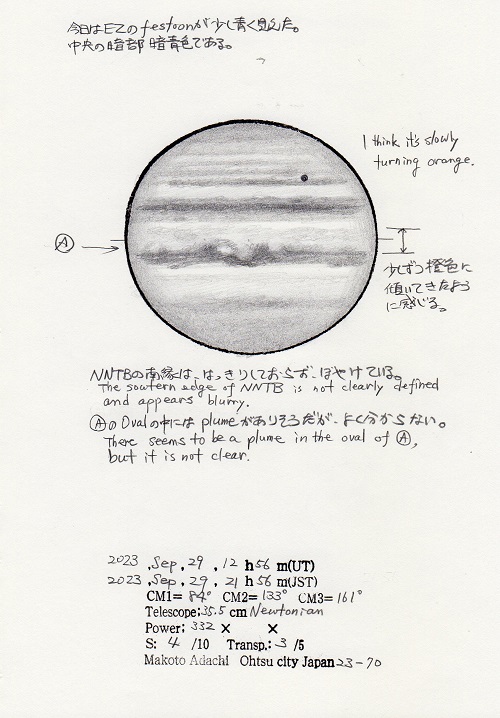 今日はEZのfestoonが少し青く見えた。
中央の暗部 暗青色である。
I think it's slowly
turning orange.
Ⓐ
少しずつ橙色に
傾いてきたよう
に感じる。
NNTBの南縁は、はっきりしておらず、ぼやけている。
The soutern edge of NNTB is not clearly defined
and appears blurry.
ⒶのOvalの中にはplumeがありそうだが、よく分からない。
There seems to be a plume in the oval of Ⓐ,
but it is not clear.
2023 ,Sep, 29 , 12 h 56 m(UT)
2023 ,Sep, 29 , 21 h 56 m(JST)
CM1= 84° CM2= 133° CM3= 161°
Telescope; 35.5 cm Newtonian
Power; 332 × ×
S: 4 /10 Transp.: 3 /5
Makoto Adachi Ohtsu city Japan 23-70